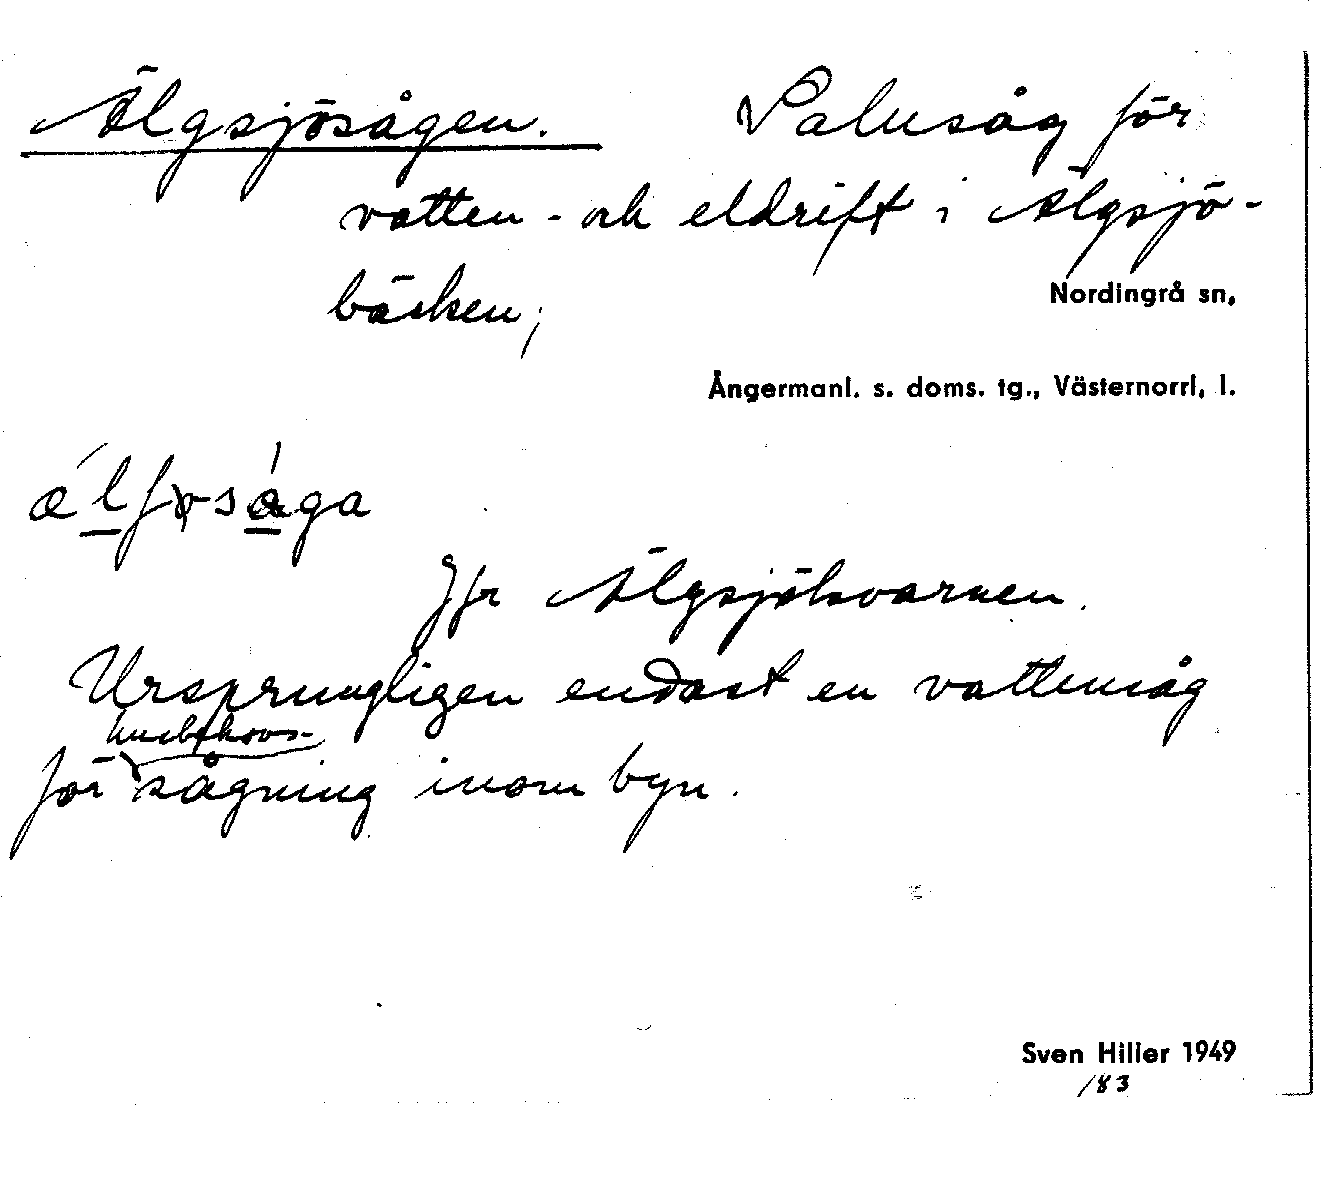 Älgsjösågen. Salusåg för
vatten- och eldrift i Älgsjö-
bäcken;
Nordingrå sn,
Ångermanl. s. doms. tg., Västernorrl, l.
Jfr Älgsjökvarnen.
Ursprungligen endast en vattensåg
husbehovs-
för sågning inom byn.
Sven Hiller 1949
/83